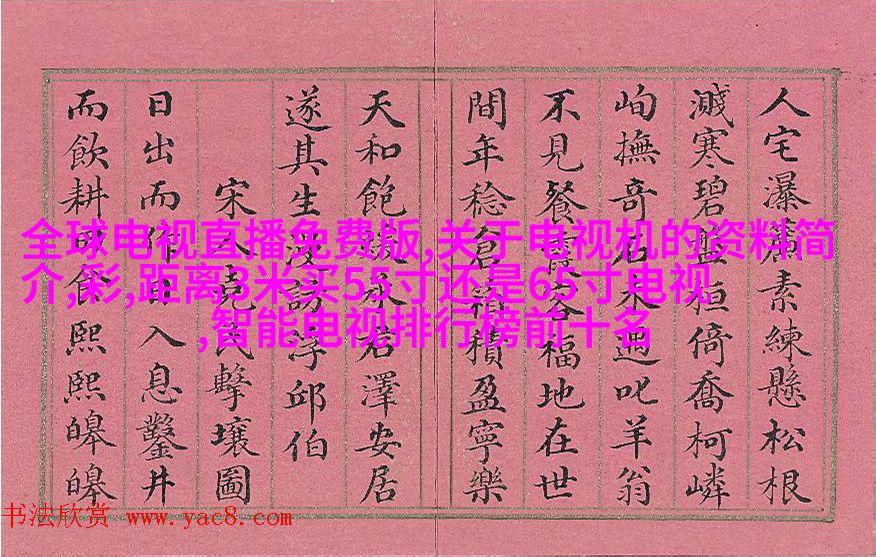 人宅瀑素練懸松根
濺寒碧盤桓倚喬柯嶙
峋撫奇石未遇叱羊翁
不見餐霞客福地在世
間年稔倉箱積盈寧樂
天和飽澤安居
遂其生訪浮邱伯
宋人民擊壤圖
日出而作日入息鑿井
而飲耕田食熙熙皞皞
全球电视直播免费版,关于电视机的资料简
介,彩,距离3米买55寸还是65寸电视
,智能电视排行榜前十名
书法欣赏 www.yac8.com